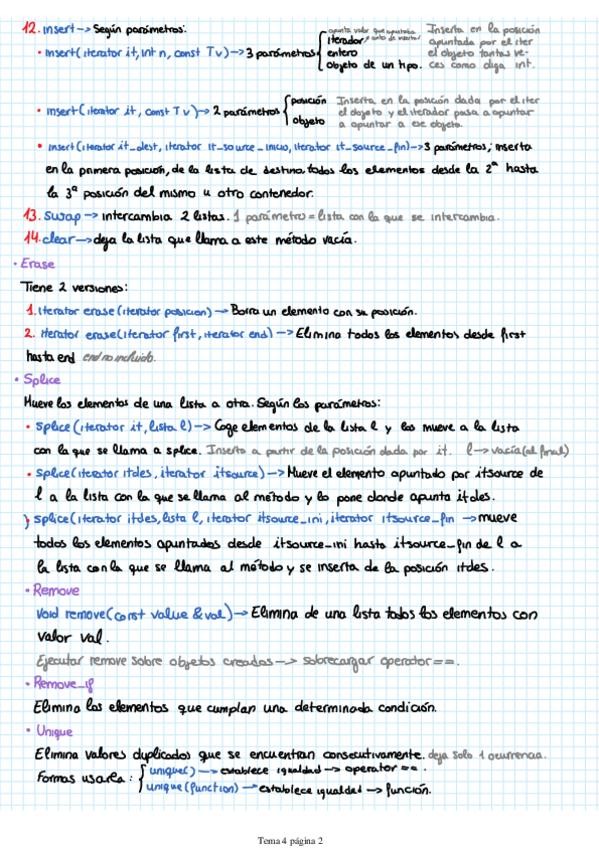 12. insert → Según parámetros:
• insert(iterator it, int n, const T v) → 3 parámetros { iterador apunta valor que apuntaba antes de insertar
entero
objeto de un tipo.
Inserta en la posición
apuntada por el iter
el objeto tantas ve-
ces como diga int.
• insert(iterator it, const T v) → 2 parámetros { posición
objeto
Inserta en la posición dada por el iter
el objeto y el iterador pasa a apuntar
a apuntar a ese objeto.
• insert(iterator it_dest, iterator it_source_inicio, iterator it_source_fin) → 3 parámetros; inserta
en la primera posición, de la lista de destino, todos los elementos desde la 2ª hasta
la 3ª posición del mismo u otro contenedor.
13. swap → intercambia 2 listas. 1 parámetro = lista con la que se intercambia.
14. clear → deja la lista que llama a este método vacía.
• Erase
Tiene 2 versiones:
1. iterator erase(iterator posicion) → Borra un elemento con su posición.
2. iterator erase(iterator first, iterator end) → Elimina todos los elementos desde first
hasta end end no incluido.
• Splice
Mueve los elementos de una lista a otra. Según los parámetros:
• splice(iterator it, lista l) → Coge elementos de la lista l y los mueve a la lista
con la que se llama a splice. Inserta a partir de la posición dada por it. l → vacía (al final)
• splice(iterator itdes, iterator itsource) → Mueve el elemento apuntado por itsource de
l a la lista con la que se llama al método y lo pone donde apunta itdes.
splice(iterator itdes, lista l, iterator itsource_ini, iterator itsource_fin → mueve
todos los elementos apuntados desde itsource_ini hasta itsource_fin de l a
la lista con la que se llama al método y se inserta de la posición itdes.
• Remove
Void remove(const value &val) → Elimina de una lista todos los elementos con
valor val.
Ejecutar remove sobre objetos creados → sobrecargar operator==.
• Remove_if
Elimina los elementos que cumplan una determinada condición.
• Unique
Elimina valores duplicados que se encuentran consecutivamente. deja solo 1 ocurrencia.
Formas usarla: { unique() → establece igualdad → operator==.
unique(function) → establece igualdad → función.
Tema 4 página 2